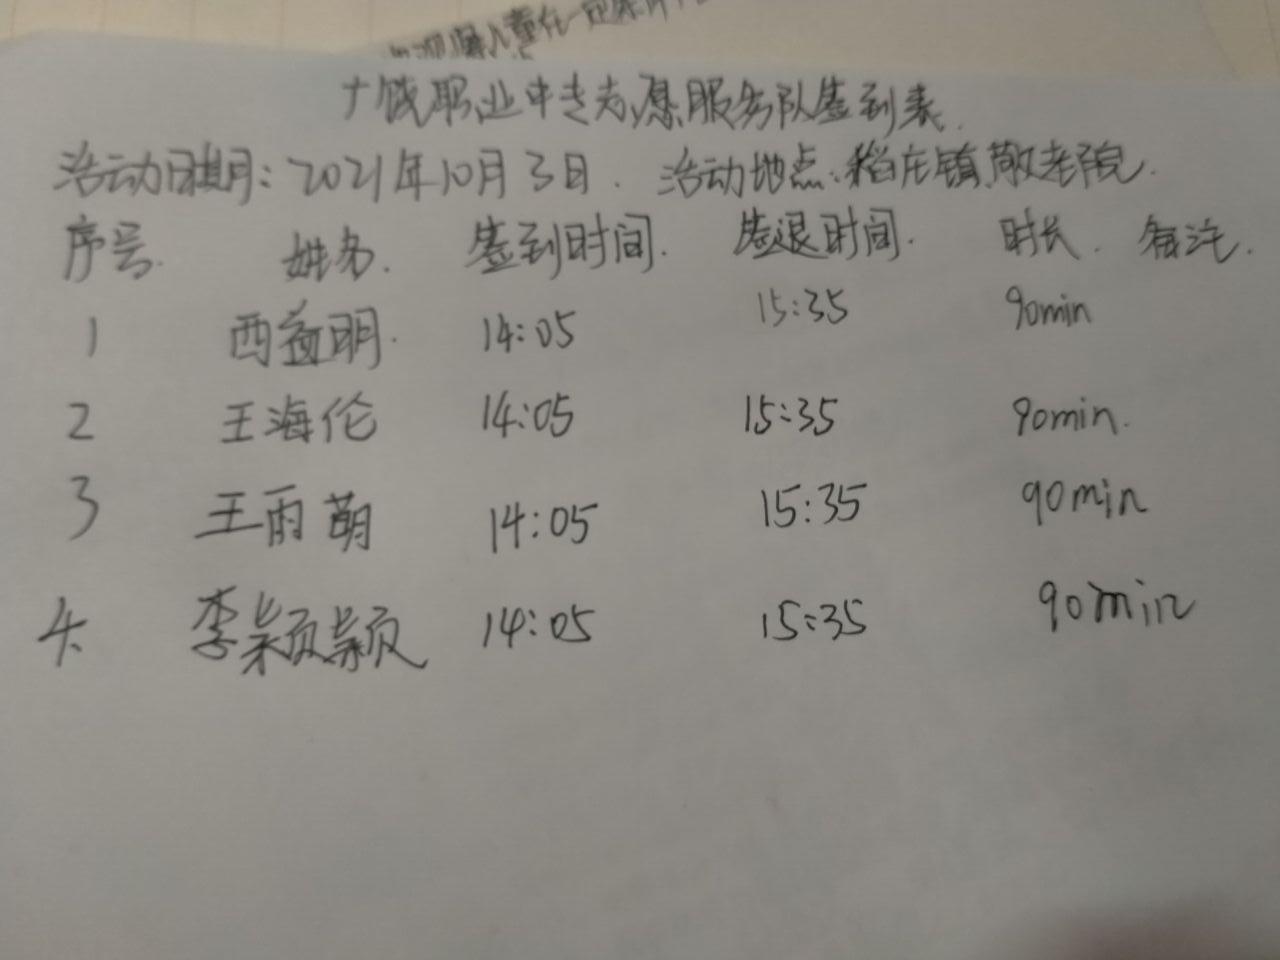 广饶职业中专志愿服务队签到表.
活动日期:2021年10月3日. 活动地点:稻庄镇敬老院.
序号. 姓名. 签到时间. 签退时间. 时长. 备注.
1 西益明. 14:05 15:35 90min
2 王海伦 14:05 15:35 90min.
3 王雨萌 14:05 15:35 90min
4. 李颖颖 14:05 15:35 90min